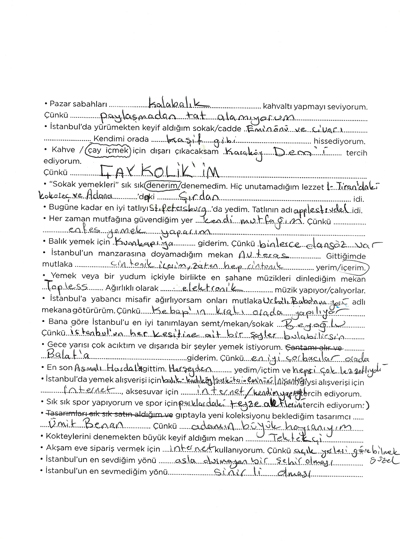 • Pazar sabahları kalabalık kahvaltı yapmayı seviyorum.
Çünkü paylaşmadan tat alamıyorum
• İstanbul'da yürümekten keyif aldığım sokak/cadde Eminönü ve civarı
Kendimi orada kaşif gibi hissediyorum.
• Kahve / çay içmek için dışarı çıkacaksam Karaköy Dem'i tercih
ediyorum.
Çünkü ÇAYKOLİK'İM
• "Sokak yemekleri" sık sık denerim/denemedim. Hiç unutamadığım lezzet
kokoreç ve Adana 'daki Şırdan idi.
• Bugüne kadar en iyi tatlıyı St. Petersburg 'da yedim. Tatlının adı applestrudel idi.
• Her zaman mutfağına güvendiğim yer kendi mutfağım. Çünkü
enfes yemek yaparım
• Balık yemek için Kumkapı'ya giderim. Çünkü binlerce
• İstanbul'un manzarasına doyamadığım mekan Gittiğimde
mutlaka yerim/içerim
• Yemek veya bir yudum içkiyle birlikte en şahane müzikleri dinlediğim mekan
Topless Ağırlıklı olarak elektronik müzik yapıyor/çalıyorlar.
• İstanbul'a yabancı misafir ağırlıyorsam onları mutlaka adlı
mekana götürürüm. Çünkü Kebap'ın kralı orada yapılıyor
• Bana göre İstanbul'u en iyi tanımlayan semt/mekan/sokak Beyoğlu
Çünkü İstanbul'un her kesitine ait bir şeyler bulabilirsin
• Gece yarısı çok acıktım ve dışarıda bir şeyler yemek istiyorum.
Balat'a giderim. Çünkü en iyi çorbacılar orada
• En son Asmalı gittim. Herşeyden yedim/içtim ve hepsi çok lezzetliydi
• İstanbul'da yemek alışverişi için giysi alışverişi için
İnternet, aksesuar için internet tercih ederim.
• Sık sık spor yapıyorum ve spor için parklardaki teyze tercih ederim:)
• Tasarımları sık sık satın aldığım ve gıptayla yeni koleksiyonu beklediğim tasarımcı
Ümit Benan Çünkü adamın büyük hayranıyım
• Kokteylerini denemekten büyük keyif aldığım mekan Tektekçi
• Akşam eve sipariş vermek için internet kullanıyorum. Çünkü açık yerleri görebilmek
güzel
• İstanbul'un en sevdiğim yönü asla durmayan bir şehir olması
• İstanbul'un en sevmediğim yönü sinirli olması